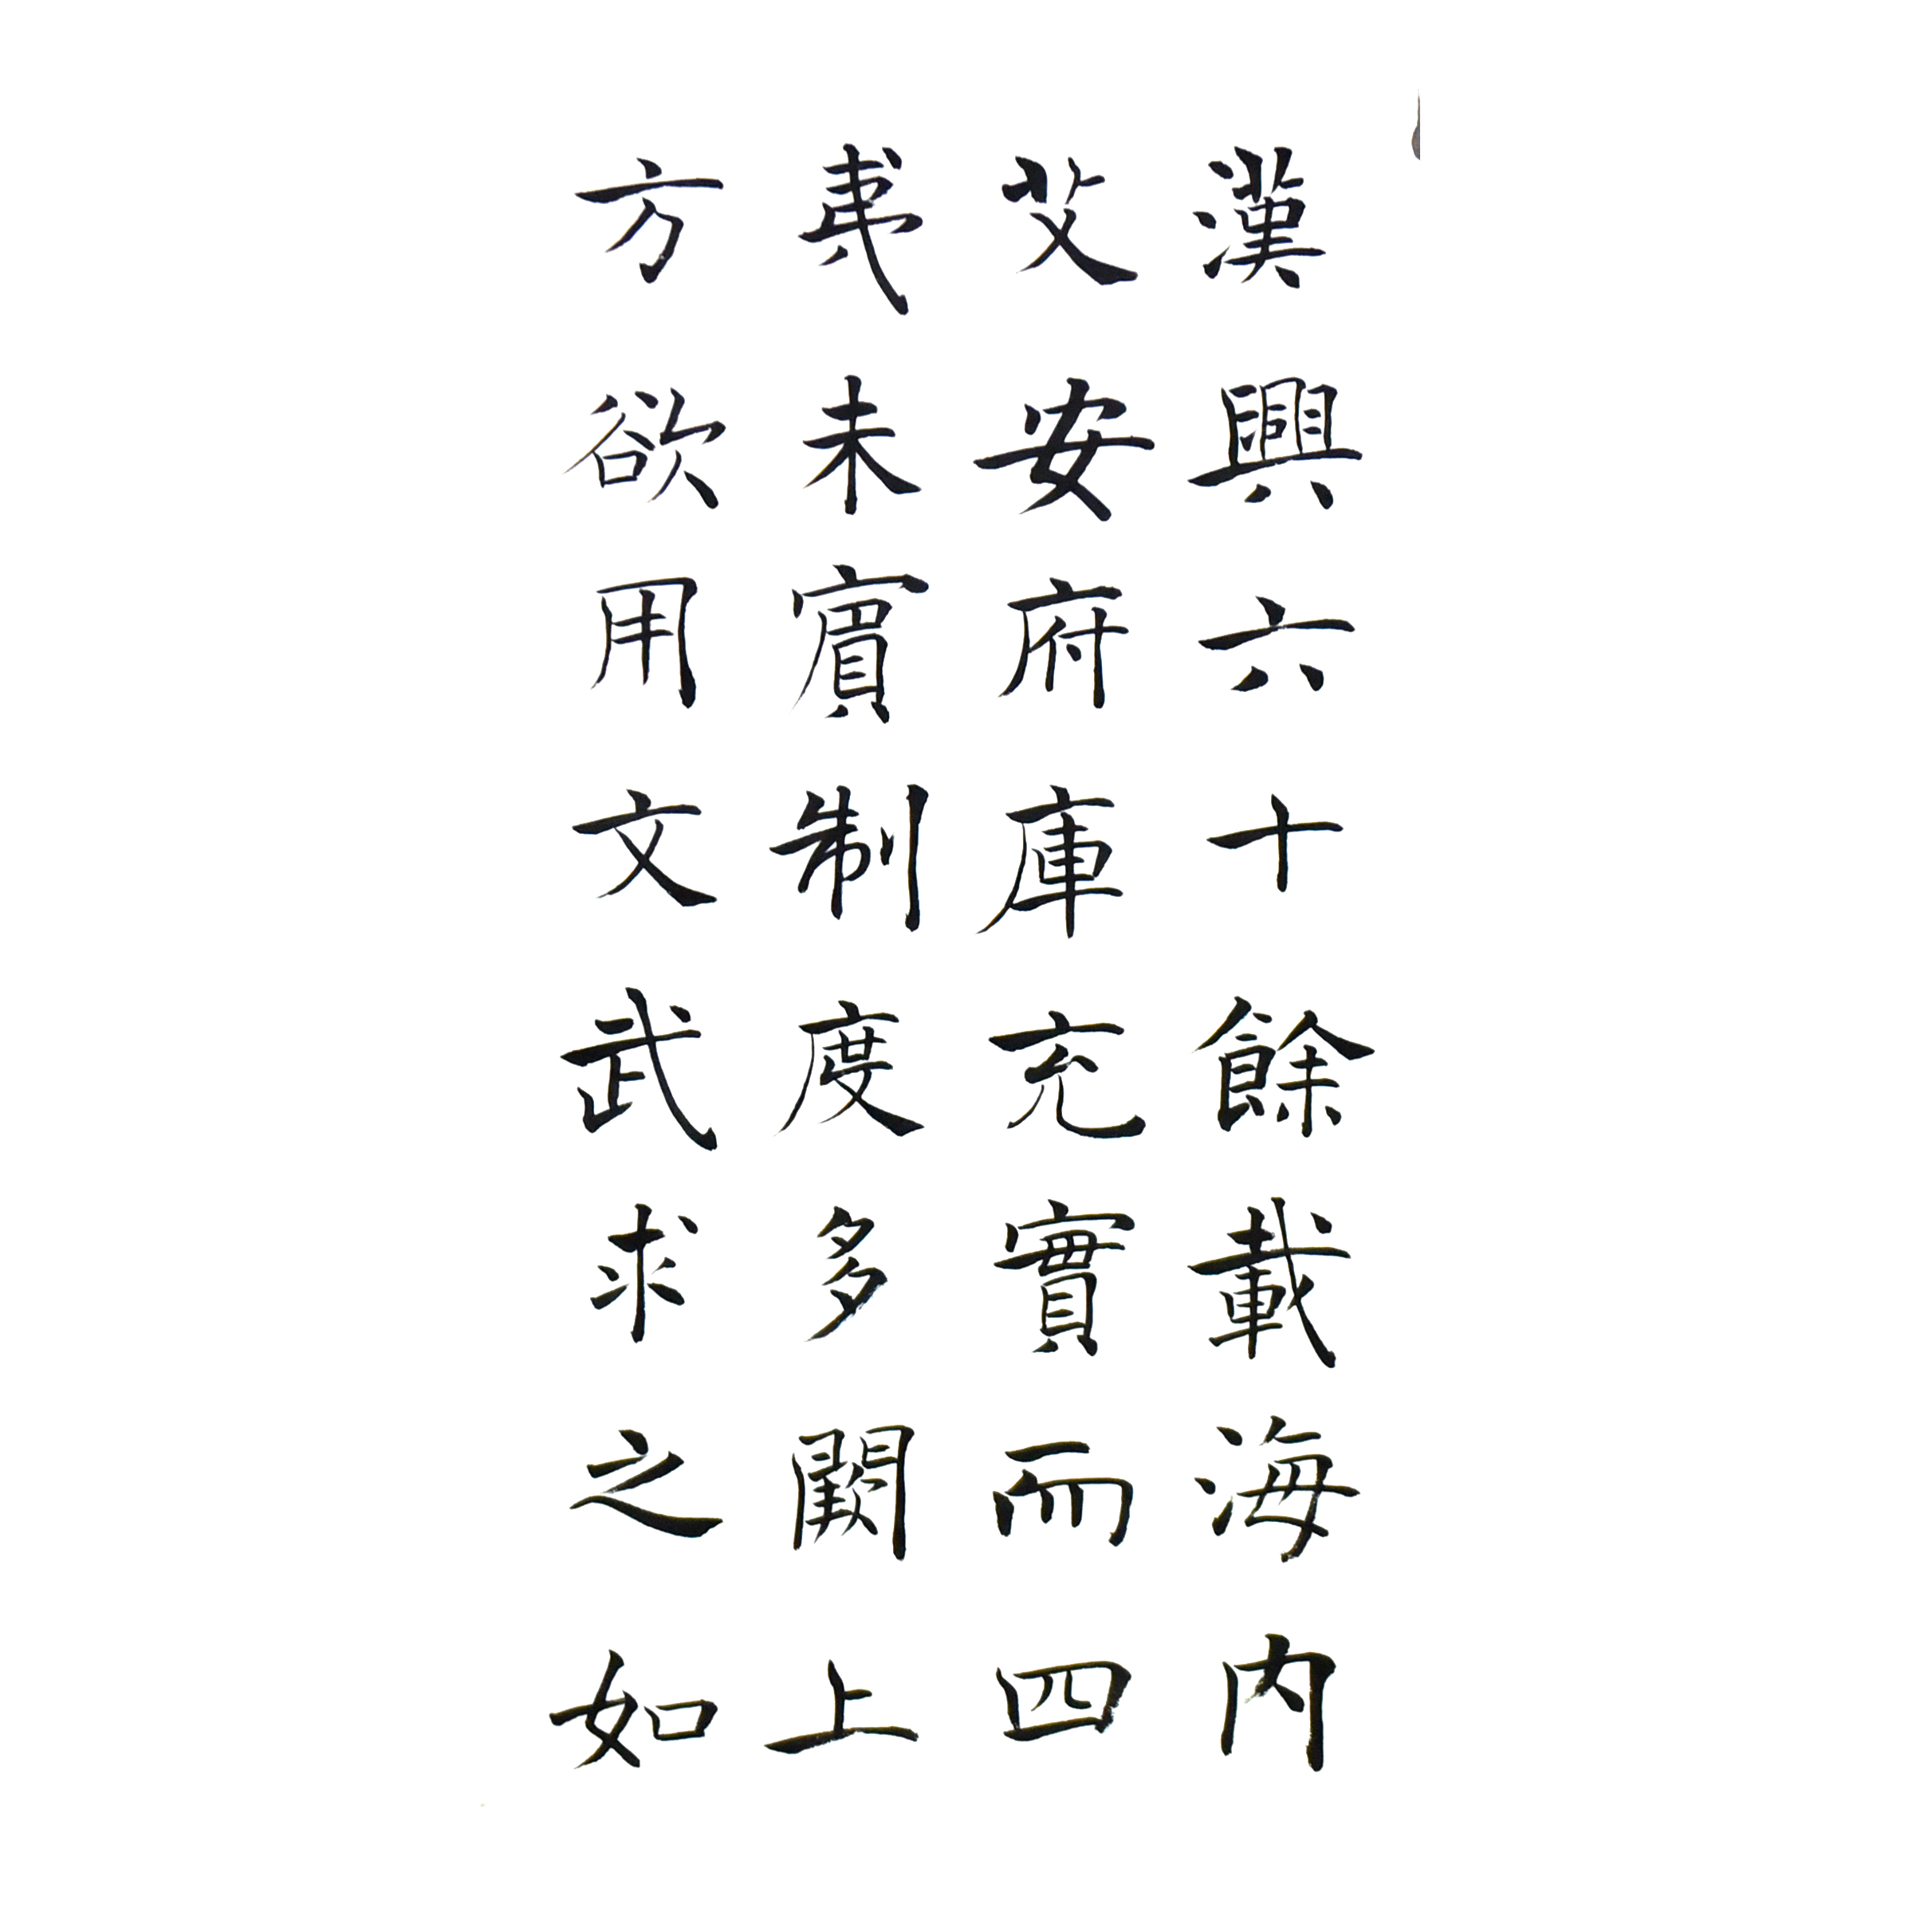 漢興六十餘載海內
艾安府庫充實而四
夷未賓制度多闕上
方欲用文武求之如